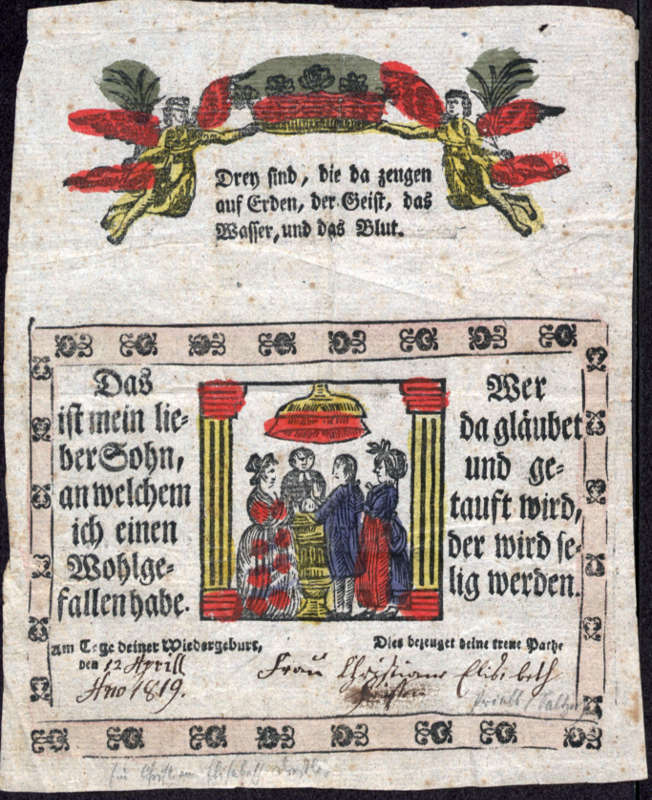 Drey sind, die da zeugen
auf Erden, der Geist, das
Wasser, und das Blut.
Das
ist mein lie-
ber Sohn,
an welchem
ich einen
Wohlge-
fallen habe.
Wer
da gläubet
und ge-
tauft wird,
der wird se-
lig werden.
Am Tage deiner Wiedergeburt,
den 12 Aprill
Ano 1819.
Dies bezeuget deine treue Pathe
Frau Christiane Elisebeth